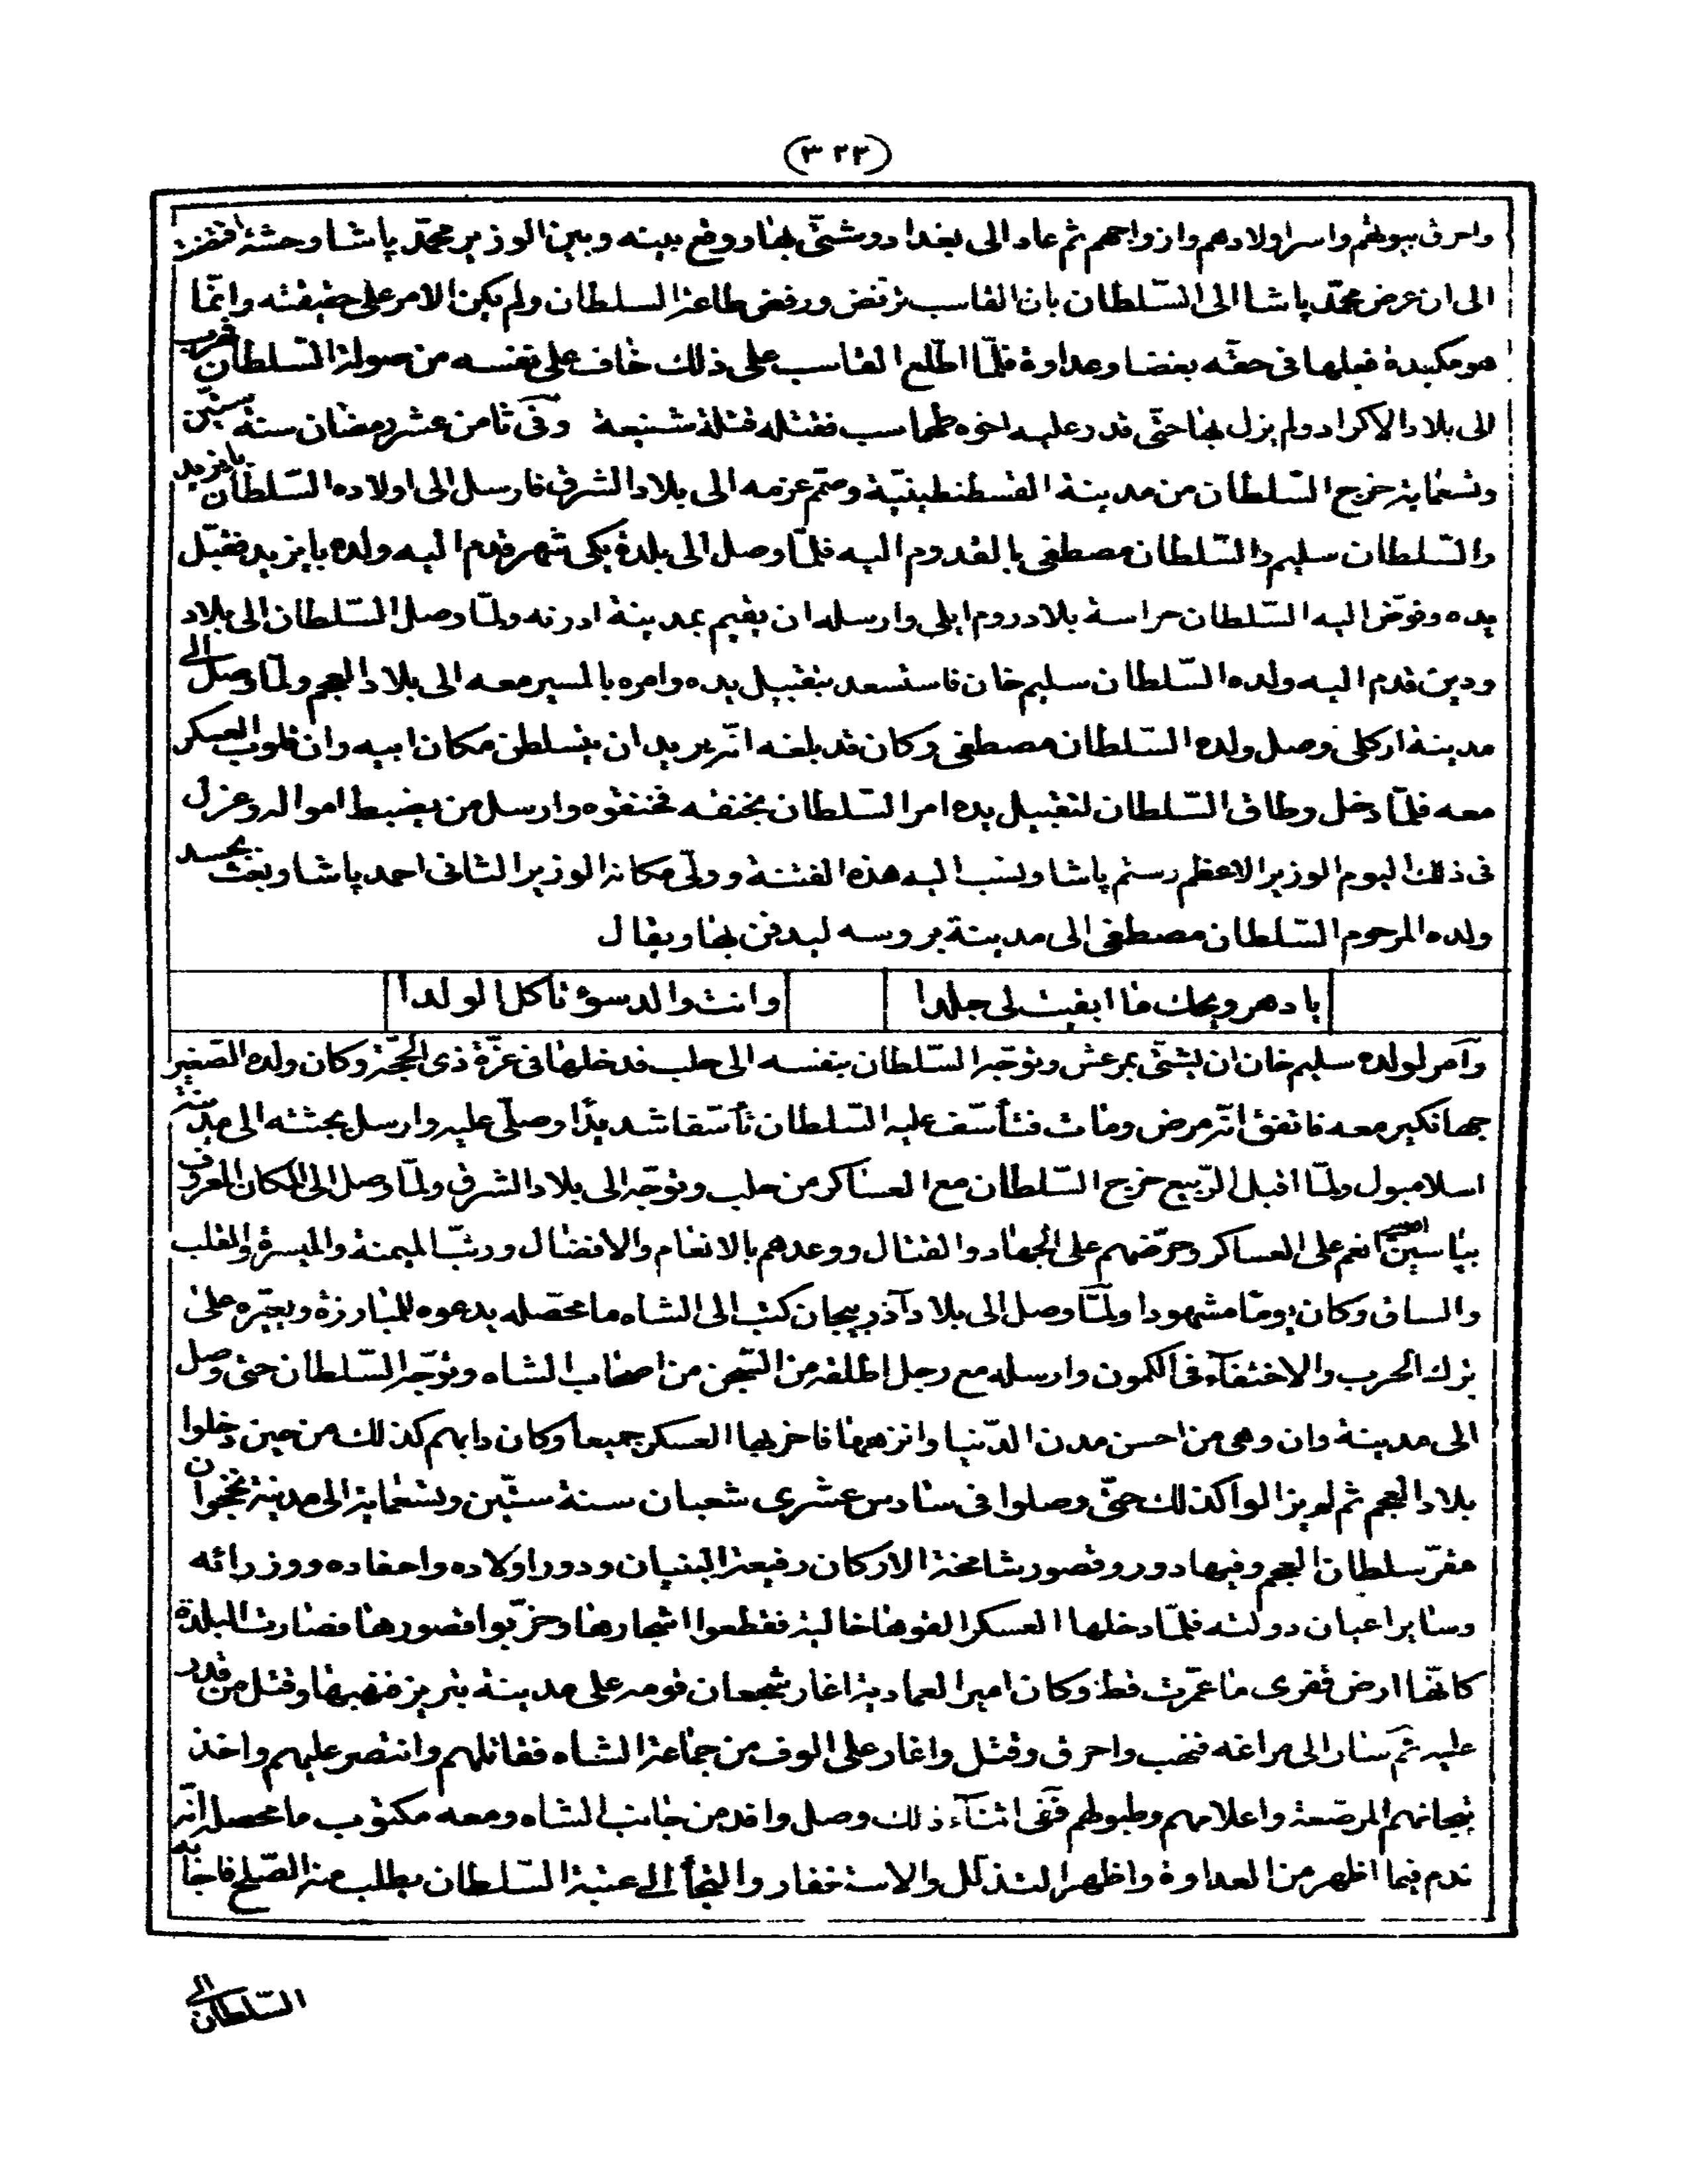 (٣٢٣)
واحرق بيوتهم واسر اولادهم وازواجهم ثم عاد الى بغداد وشتّى بها ووقع بينه وبين الوزير محمّد پاشا وحشة افضت
الى ان عرض محمّد پاشا الى السّلطان بان القاسب ترفض ورفض طاعة السلطان ولم يكن الامر على حقيقته وانّما
هو مكيدة فعلها فى حقّه بغضا وعداوة فلمّا اطّلع القاسب على ذلك خاف على نفسه من صولة السّلطان فهرب
الى بلاد الاكراد ولم يزل بها حتّى قدر عليه اخوه طهماسب فقتله قتلة شنيعة وفى ثامن عشر رمضان سنة ستّين
وتسعماية خرج السّلطان من مدينة القسطنطينيّة وصمّم عزمه الى بلاد الشرق فارسل الى اولاده السّلطان بايزيد
والسّلطان سليم والسّلطان مصطفى بالقدوم اليه فلمّا وصل الى بلدة يكى شهر قدم اليه ولده بايزيد فقبّل
يده وفوّض اليه السّلطان حراسة بلاد روم ايلى وارسله ان يقيم بمدينة ادرنه ولمّا وصل السّلطان الى بلاد
ودين قدم اليه ولده السّلطان سليم خان فاستسعد بتقبيل يده وامره بالمسير معه الى بلاد العجم ولمّا وصل الى
مدينة اركلى وصل ولده السّلطان مصطفى وكان قد بلغه انّه يريد ان يتسلطن مكان ابيه وان قلوب العسكر
معه فلمّا دخل وطاق السّلطان لتقبيل يده امر السّلطان بخنقه فخنقوه وارسل من يضبط امواله وعزل
فى ذلك اليوم الوزير الاعظم رستم پاشا ونسب اليه هذه الفتنة وولّى مكانه الوزير الثانى احمد پاشا وبعث بجسد
ولده المرحوم السّلطان مصطفى الى مدينة بروسه ليدفن بها ويقال
يا دهر ويحك ما ابقيت لى جلدا وانت والد سوء تاكل الولدا
وآمر لولده سليم خان ان يشتّى بمرعش وتوجّه السّلطان بنفسه الى حلب فدخلها فى غرّة ذى الحجّة وكان ولده الصّغير
جهانكير معه فاتفق انّه مرض ومات فتأسّف عليه السّلطان تأسّفا شديدًا وصلّى عليه وارسل بجثته الى مدينة
اسلامبول ولمّا اقبل الرّبيع خرج السّلطان مع العساكر من حلب وتوجّه الى بلاد الشرق ولمّا وصل الى المكان المعروف
بپاسين انعم على العساكر وحرّضهم على الجهاد والقتال ووعدهم بالانعام والافضال ورتّب الميمنة والميسرة والقلب
والساق وكان يومًا مشهودا ولمّا وصل الى بلاد آذربيجان كتب الى الشاه ما محصّله يدعوه للمبارزة ويعيّره على
ترك الحرب والاختفآء فى الكمون وارسله مع رجل اطلقه من السّجن من اصحاب الشاه وتوجّه السّلطان حتى وصل
الى مدينة وان وهى من احسن مدن الدّنيا وانزهها فاخربها العسكر جميعا وكان دابهم كذلك من حين دخلوا
بلاد العجم ثم لم يزالوا كذلك حتّى وصلوا فى سادس عشرى شعبان سنة ستّين وتسعماية الى مدينة نخجوان
مقرّ سلطان العجم وفيها دور وقصور شامخة الاركان رفيعة البنيان ودور اولاده واحفاده ووزرائه
وساير اعيان دولته فلمّا دخلها العسكر الفوها خالية فقطعوا اشجارها وخرّبوا قصورها فصارت البلدة
كانّها ارض قفرى ما عمّرت قط وكان امير العمادية اغار بشجعان قومه على مدينة تبريز فنهبها وقتل من قدر
عليه ثم سار الى مراغه فنهب واحرق وقتل واغار على الوف من جماعة الشاه فقاتلهم وانتصر عليهم واخذ
تيجانهم المرصّعة واعلامهم وطبولهم فى اثنآء ذلك وصل وافد من جانب الشاه ومعه مكتوب ما محصله انّه
ندم فيما اظهر من العداوة واظهر التذلّل والاستغفار والتجأ الى عتبة السّلطان يطلب منه الصّلح فاجابه
السّلطان الى